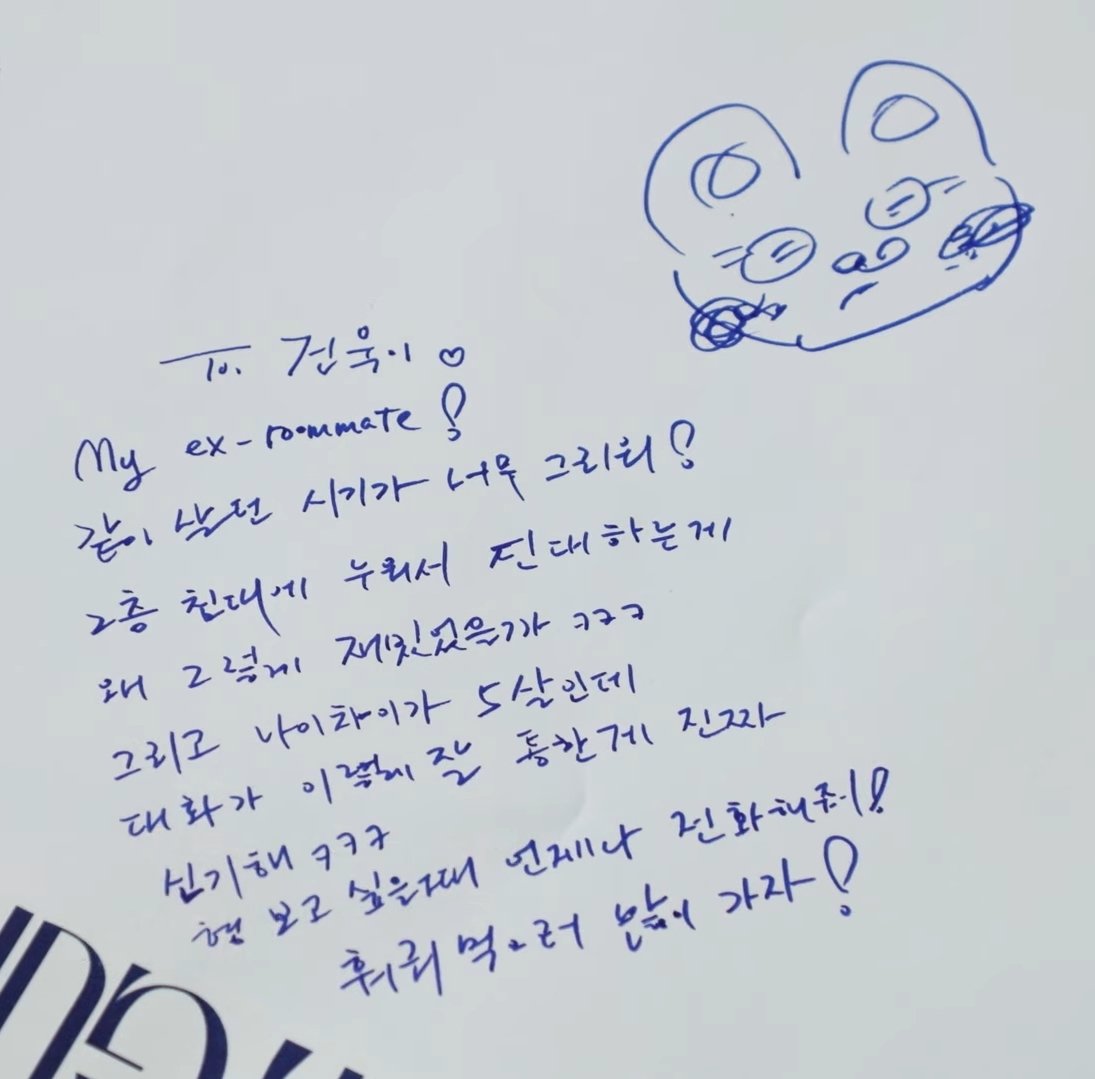 To. 건욱이 ♡
My ex-roommate!
같이 살던 시기가 너무 그리워!
2층 침대에 누워서 진대하는게
왜 그렇게 재밌었을까 ㅋㅋㅋ
그리고 나이차이가 5살인데
대화가 이렇게 잘 통한게 진짜
신기해 ㅋㅋㅋ
형 보고 싶을때 언제나 전화해줘!
훠궈 먹으러 많이 가자!